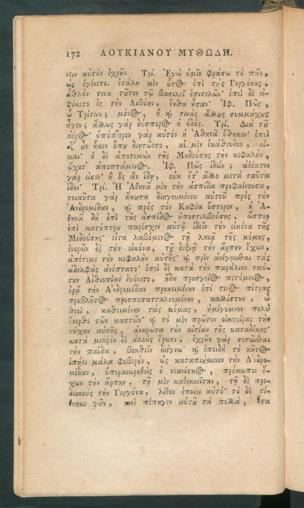 172 ΛΟΥΚΙΑΝΟΥ ΜΥΘΩΔΗ.
νειν αὐτὸν ἐχρῆν. Τρί. Ἐγὼ ὑμῖν φράσω τὸ πᾶν,
ὡς ἐγένετο. ἐστάλη μὲν οὗτος ἐπὶ τὰς Γοργόνας,
ἆθλόν τινα τοῦτον τῷ βασιλεῖ ἐπιτελῶν· ἐπεὶ δὲ ἀ-
φίκετο ἐς τὴν Λιβύην, ἔνθα ἦσαν· ἸΦ. Πῶς,
ὦ Τρίτων; μόνος, ἢ καὶ τινας ἄλλους συμμάχους
ἦγεν; ἄλλως γὰρ δύσπορος ἡ ὁδός. Τρί. Διὰ τοῦ
ἀέρος· ὑπόπτερον γὰρ αὐτὸν ἡ Ἀθηνᾶ ἔθηκεν· ἐπεὶ
δ' οὖν ἧκεν ὅπου διῃτῶντο, αἱ μὲν ἐκάθευδον, οἶ-
μαι· ὁ δὲ ἀποτεμὼν τῆς Μεδούσης τὴν κεφαλὴν,
ᾤχετ' ἀποπτάμενος. ἸΦ. Πῶς ἰδών; ἀθέατοι
γάρ εἰσιν· ἢ ὃς ἂν ἴδῃ, οὐκ ἄν τι ἄλλο μετὰ ταύτας
ἴδοι. Τρί. Ἡ Ἀθηνᾶ μὲν τὴν ἀσπίδα προφαίνουσα,
τοιαῦτα γὰρ ἤκουσα διηγουμένου αὐτοῦ πρὸς τὴν
Ἀνδρομέδαν, καὶ πρὸς τὸν Κηφέα ὕστερον, ἡ Ἀ-
θηνᾶ δὴ ἐπὶ τῆς ἀσπίδος ἀποστιλβούσης, ὥσπερ
ἐπὶ κατόπτρου παρέσχεν αὐτῷ ἰδεῖν τὴν εἰκόνα τῆς
Μεδούσης· εἶτα λαβόμενος τῇ λαιᾷ τῆς κόμης,
ἐνορῶν δὲ τὴν εἰκόνα, τῇ δεξιᾷ τὴν ἅρπην ἔχων,
ἀπέτεμε τὴν κεφαλὴν αὐτῆς· καὶ πρὶν ἀνέγρεσθαι τὰς
ἀδελφὰς ἀνέπτατο· ἐπεὶ δὲ κατὰ τὴν παράλιον ταύ-
την Αἰθιοπίαν ἐγένετο, ἤδη πρόσγειος πετόμενος,
ὁρᾷ τὴν Ἀνδρομέδαν προκειμένην ἐπί τινος πέτρας
προβλῆτος προσπεπατταλευμένην, καλλίστην, ὦ
θεοὶ, καθειμένην τὰς κόμας, ἡμίγυμνον πολὺ
ἔνερθε τῶν μαστῶν· καὶ τὸ μὲν πρῶτον οἰκτείρας τὴν
τύχην αὐτῆς, ἀνηρώτα τὴν αἰτίαν τῆς καταδίκης·
κατὰ μικρὸν δὲ ἁλοὺς ἔρωτι, ἐχρῆν γὰρ σεσῶσθαι
τὴν παῖδα, βοηθεῖν διέγνω· καὶ ἐπειδὴ τὸ κῆτος
ἐπῄει μάλα φοβερὸν, ὡς καταπιόμενον τὴν Ἀνδρο-
μέδαν, ὑπεραιωρηθεὶς ὁ νεανίσκος, πρόκωπον ἔ-
χων τὴν ἅρπην, τῇ μὲν καθικνεῖται, τῇ δὲ προ-
δεικνὺς τὴν Γοργόνα, λίθον ἐποίει αὐτό· τὸ δὲ τέ-
θνηκε γὰρ, καὶ πέπηγεν αὐτῷ τὰ πολλὰ, ὅσα